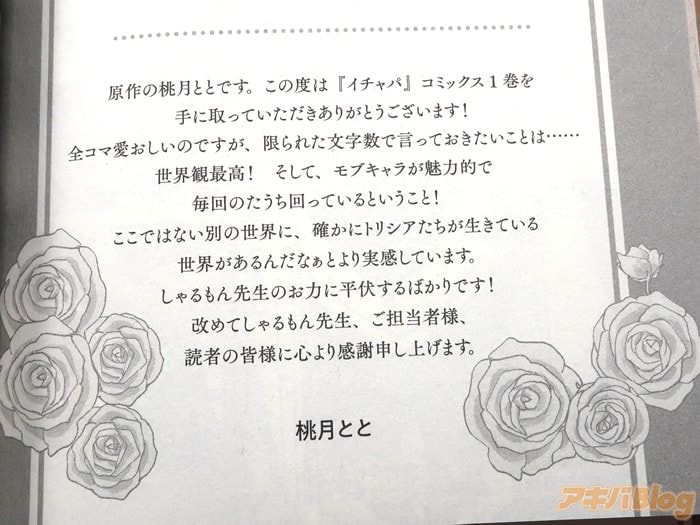 原作の桃月ととです。この度は『イチャパ』コミックス1巻を
手に取っていただきありがとうございます!
全コマ愛おしいのですが、限られた文字数で言っておきたいことは……
世界観最高! そして、モブキャラが魅力的で
毎回のたうち回っているということ!
ここではない別の世界に、確かにトリシアたちが生きている
世界があるんだなぁとより実感しています。
しゃるもん先生のお力に平伏するばかりです!
改めてしゃるもん先生、ご担当者様、
読者の皆様に心より感謝申し上げます。
桃月とと
アキバBlog